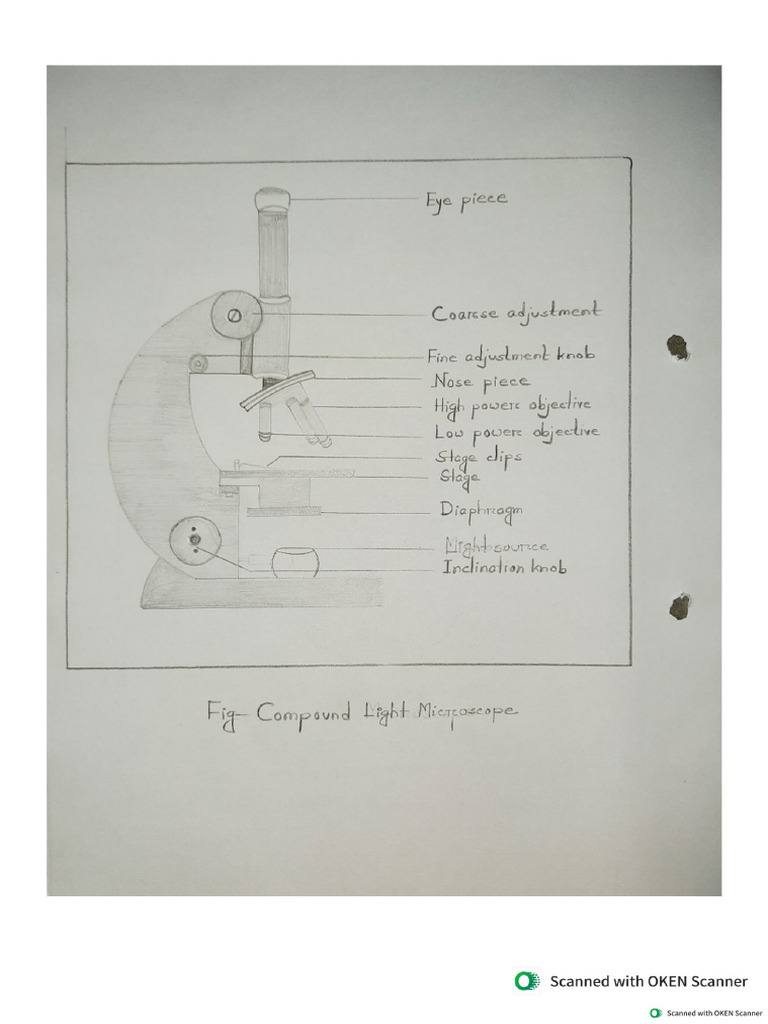 Eye piece
Coarse adjustment
Fine adjustment knob
Nose piece
High power objective
Low power objective
Stage clips
Stage
Diaphragm
Light source
Inclination knob
Fig- Compound Light Microscope
Scanned with OKEN Scanner
Scanned with OKEN Scanner